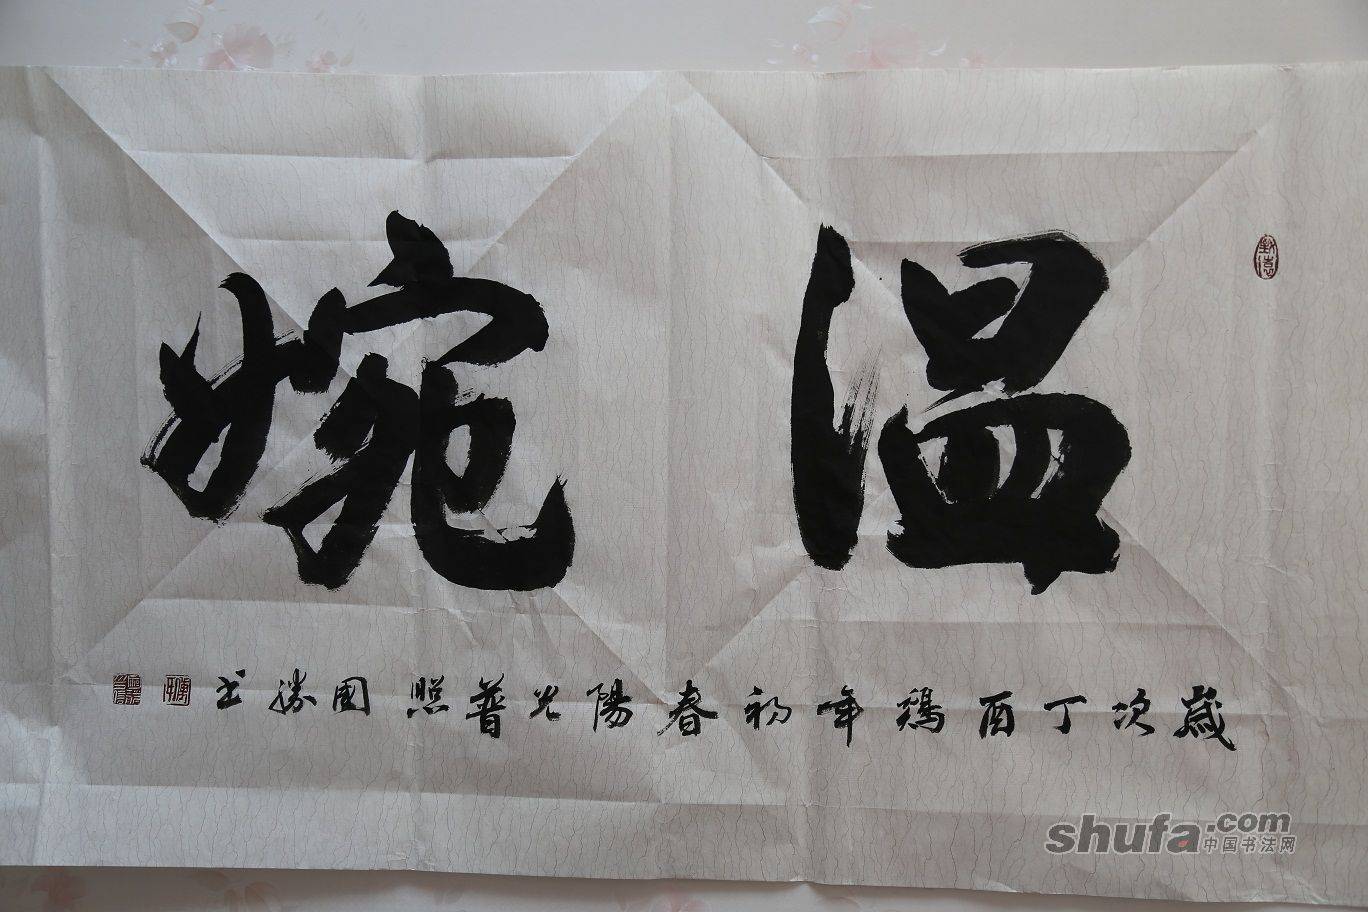 温婉
歲次丁酉鷄年初春陽光普照國勝书
shufa.com
中国书法网